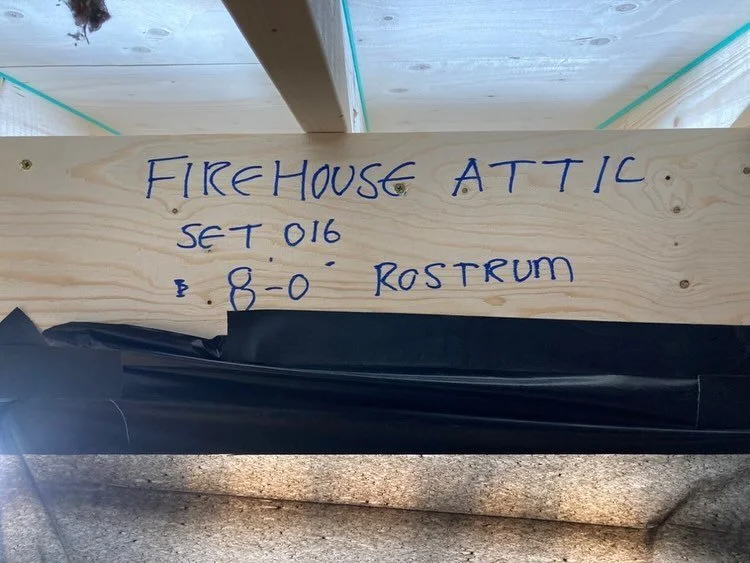 FIREHOUSE ATTIC
SET 016
8'-0" ROSTRUM